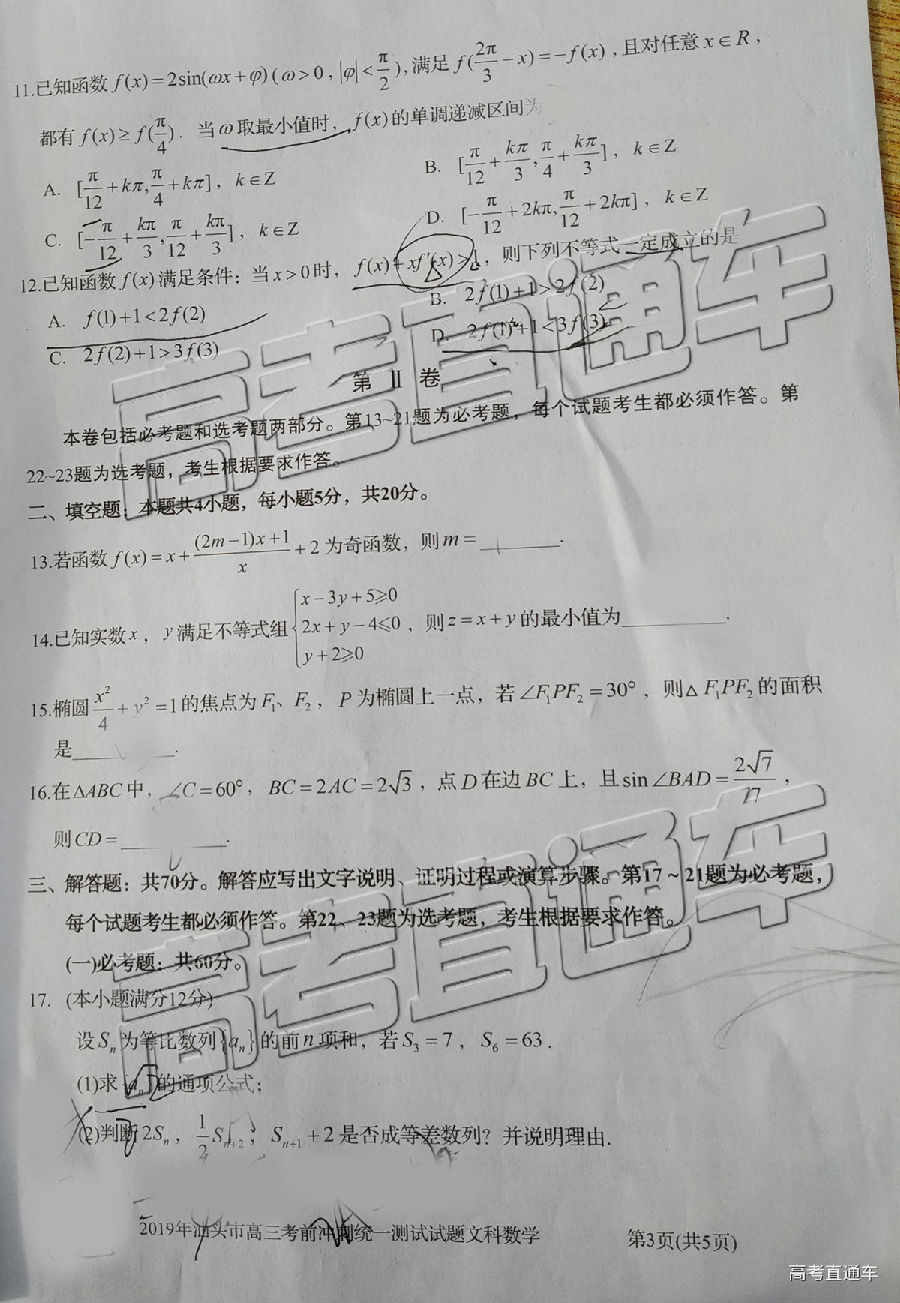 11.已知函数 f(x)=2sin(ωx+φ)(ω>0,|φ|<π/2),满足 f(2π/3-x)=-f(x),且对任意 x∈R,
都有 f(x)≥f(π/4). 当ω取最小值时,f(x)的单调递减区间为
A. [π/12+kπ,π/4+kπ],k∈Z
B. [π/12+kπ/3,π/4+kπ/3],k∈Z
C. [-π/12+kπ/3,π/12+kπ/3],k∈Z
D. [-π/12+2kπ,π/12+2kπ],k∈Z
12.已知函数 f(x)满足条件:当 x>0时,f(x)+xf'(x)>1,则下列不等式一定成立的是
A. f(1)+1<2f(2)
B. 2f(1)+1>2f(2)
C. 2f(2)+1>3f(3)
D. 2f(1)+1<3f(3)
第 Ⅱ 卷
本卷包括必考题和选考题两部分。第13~21题为必考题,每个试题考生都必须作答。第
22~23题为选考题,考生根据要求作答。
二、填空题:本题共4小题,每小题5分,共20分。
13.若函数 f(x)=x+((2m-1)x+1)/x+2为奇函数,则m=______.
14.已知实数x,y满足不等式组{x-3y+5⩾0 2x+y-4⩽0 y+2⩾0,则z=x+y的最小值为______.
15.椭圆x²/4+y²=1的焦点为F₁、F₂,P为椭圆上一点,若∠F₁PF₂=30°,则△F₁PF₂的面积
是______.
16.在△ABC中,∠C=60°,BC=2AC=2√3,点D在边BC上,且sin∠BAD=2√7/7,
则CD=______.
三、解答题:共70分。解答应写出文字说明、证明过程或演算步骤。第17~21题为必考题,
每个试题考生都必须作答。第22、23题为选考题,考生根据要求作答。
(一)必考题:共60分。
17. (本小题满分12分)
设Sₙ为等比数列{aₙ}的前n项和,若S₃=7,S₆=63.
(1)求{aₙ}的通项公式;
(2)判断2Sₙ,1/2Sₙ₊₂,Sₙ₊₁+2是否成等差数列?并说明理由.
2019年汕头市高三考前冲刺统一测试试题文科数学
第3页(共5页)
高考直通车
高考直通车
高考直通车